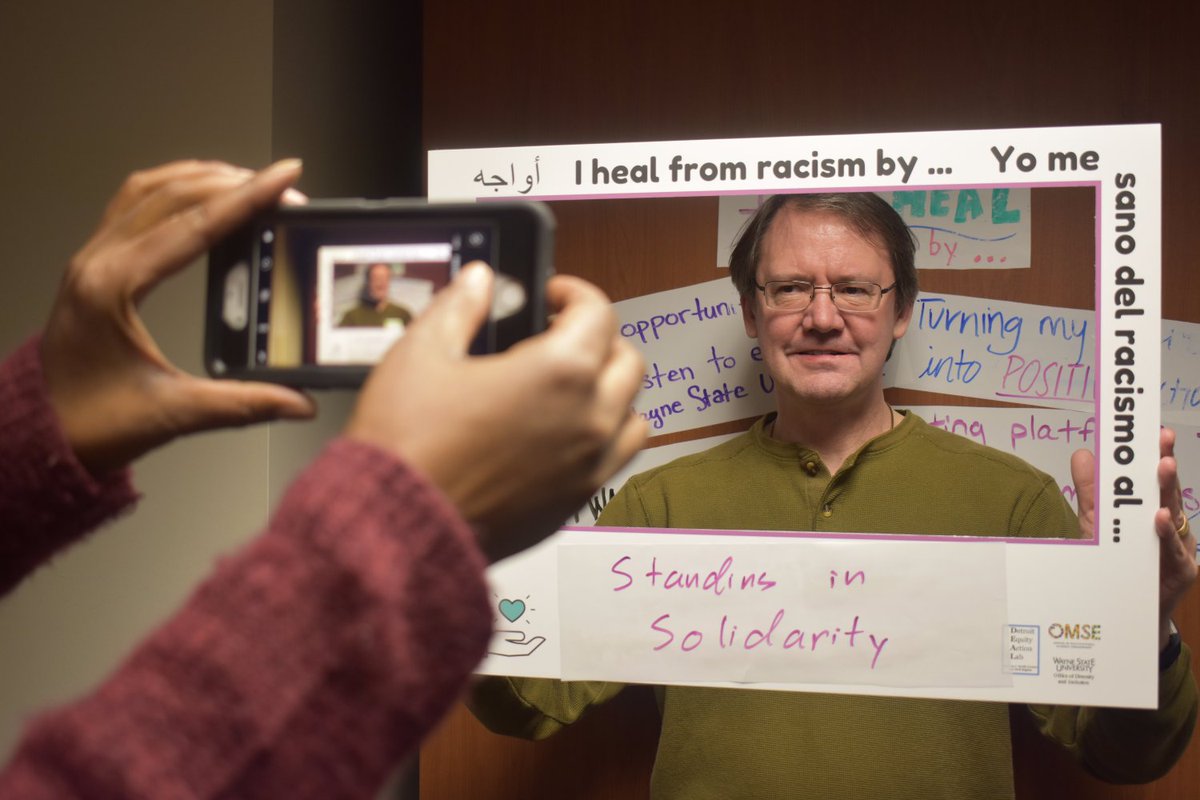 أواجه I heal from racism by ... Yo me
sano del racismo al ...
HEAL
by ...
opportuni
sten to e
ayne State U
Turning my
into POSITI
ting platf
Standing in
Solidarity
Detroit
Equity
Action
Lab
OMSE
WAYNE STATE
UNIVERSITY
Office of Diversity
and Inclusion